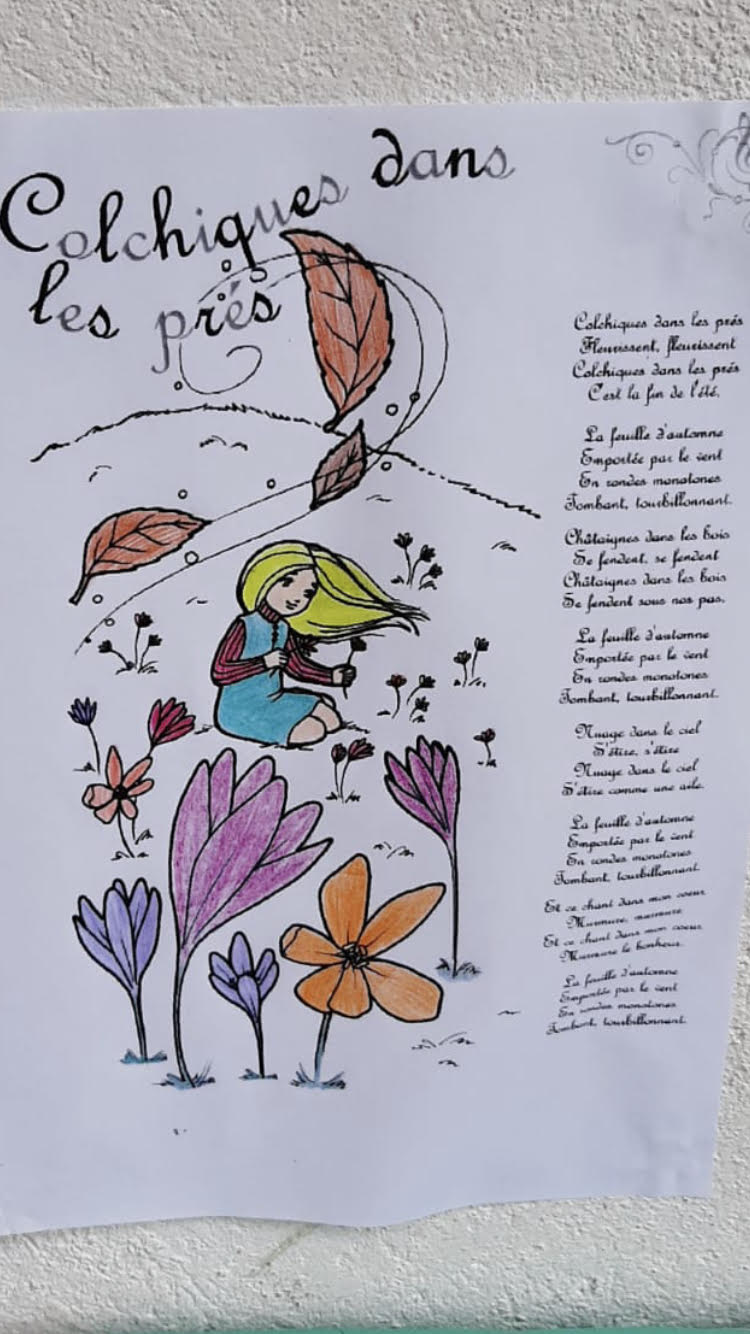 Colchiques dans
les prés
Colchiques dans les prés
Fleurissent, fleurissent
Colchiques dans les prés
C'est la fin de l'été.
La feuille d'automne
Emportée par le vent
En rondes monotones
Tombant, tourbillonnant.
Châtaignes dans les bois
Se fendent, se fendent
Châtaignes dans les bois
Se fendent sous nos pas.
La feuille d'automne
Emportée par le vent
En rondes monotones
Tombant, tourbillonnant.
Nuage dans le ciel
S'étire, s'étire
Nuage dans le ciel
S'étire comme une aile.
La feuille d'automne
Emportée par le vent
En rondes monotones
Tombant, tourbillonnant.
Et ce chant dans mon coeur
Murmure, murmure
Et ce chant dans mon coeur
Murmure le bonheur.
La feuille d'automne
Emportée par le vent
En rondes monotones
Tombant, tourbillonnant.